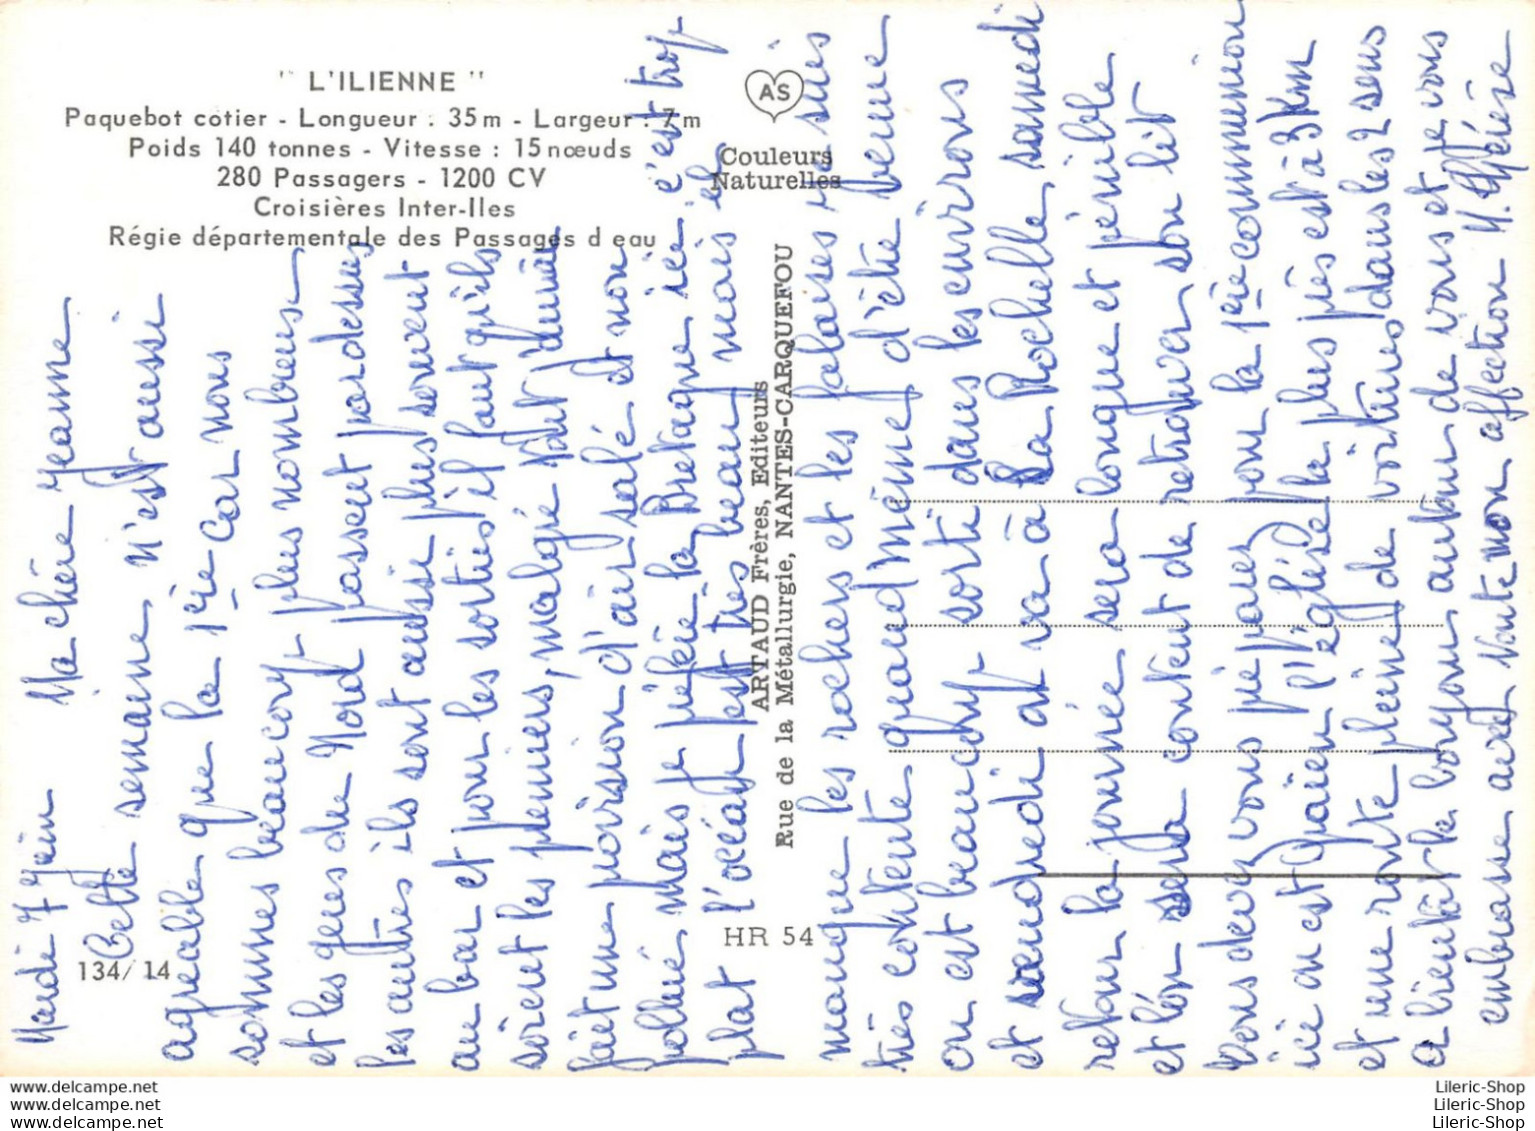 " L'ILIENNE "
Paquebot côtier - Longueur : 35 m - Largeur : 7 m
Poids 140 tonnes - Vitesse : 15 nœuds
280 Passagers - 1200 CV
Croisières Inter-Iles
Régie départementale des Passages d eau
AS
Couleurs
Naturelles
ARTAUD Frères, Editeurs
Rue de la Métallurgie, NANTES-CARQUEFOU
HR 54
134/14
Mardi 7 Juin Ma chère Jeanne
Cette semaine n'est aussi
agréable que la 1ère car nous
sommes beaucoup plus nombreux
et les gens du Nord passent par dessus
les autres ils sont aussi plus souvent
au bar et pour les sorties il faut qu'ils
soient les premiers, malgré tout
fait une d'air salé et non
pollué mais je préfère la Bretagne ici c'est trop
plat l'océan est très beau mais il
manque les rochers et les falaises je suis
très contente quand même d'être venue
on est beaucoup sorti dans les environs
et vendredi on va à La Rochelle samedi
retour la journée sera longue et pénible
et l'on sera content de retrouver son lit
Vous devez vous préparer pour la 1ère communion
ici on est l'église la plus près est à 3 Km
et une route pleine de voitures dans les 2 sens
a bientôt le bonjour autour de vous et je vous
embrasse avec toute mon affection M. Thérèse
Lileric-Shop
Lileric-Shop
Lileric-Shop
www.delcampe.net
www.delcampe.net
www.delcampe.net